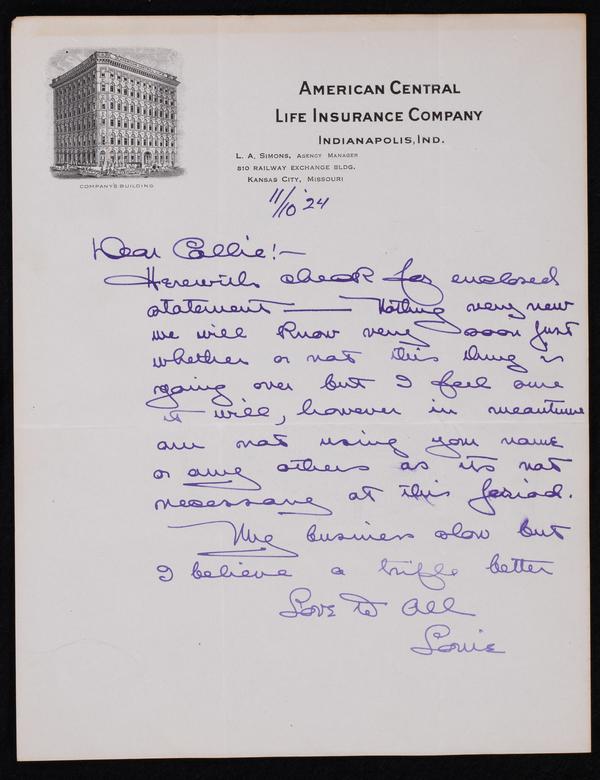 AMERICAN CENTRAL
LIFE INSURANCE COMPANY
INDIANAPOLIS, IND.
L. A. SIMONS, AGENCY MANAGER
810 RAILWAY EXCHANGE BLDG.
KANSAS CITY, MISSOURI
COMPANY'S BUILDING
11/10 '24
Dear Collie! —
Herewith check for enclosed
statement — Nothing very new
we will know very soon just
whether or not this thing is
going over but I feel sure
it will, however in meantime
am not using your name
or any others as its not
necessary at this period.
My business slow but
I believe a trifle better
Love to All
Louie